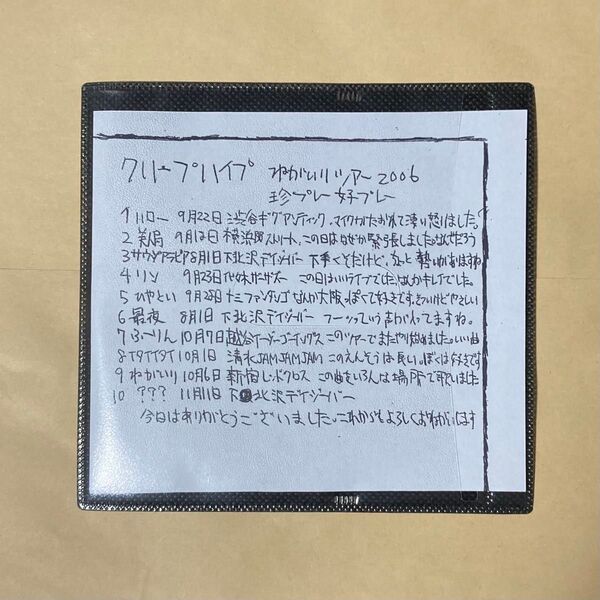 クリープハイプ ねがいりツアー2006
珍プレー好プレー
1 ハロー 9月22日 渋谷ギグアンティック、マイクがたおれて凄い怒りました。
2 美人局 9月12日 横浜 ストリート、この日はなぜか緊張しました。なぜだろう
3 サウジアラビア 8月1日 下北沢デイジーバー 下手くそだけど、勢いがありますね
4 リン 9月23日 代々木 この日はいいライブでした。なんかキレイでした。
5 ひやとい 9月28日 十三ファンダンゴ なんか大阪っぽくて好きです。
6 最夜 8月1日 下北沢デイジーバー フーッっていう声が入ってますね。
7 ふーりん 10月7日 越谷イージーゴーイングス このツアーでまたやり始めました。いい曲
8 タイタイタイ 10月1日 清水JAMJAMJAM このえんそうは長い。ぼくは好きです
9 ねがいり 10月6日 新宿レッドクロス この曲をいろんな場所で歌いました
10 ??? 11月11日 下北沢デイジーバー
今日はありがとうございました。これからもよろしくおねがいします